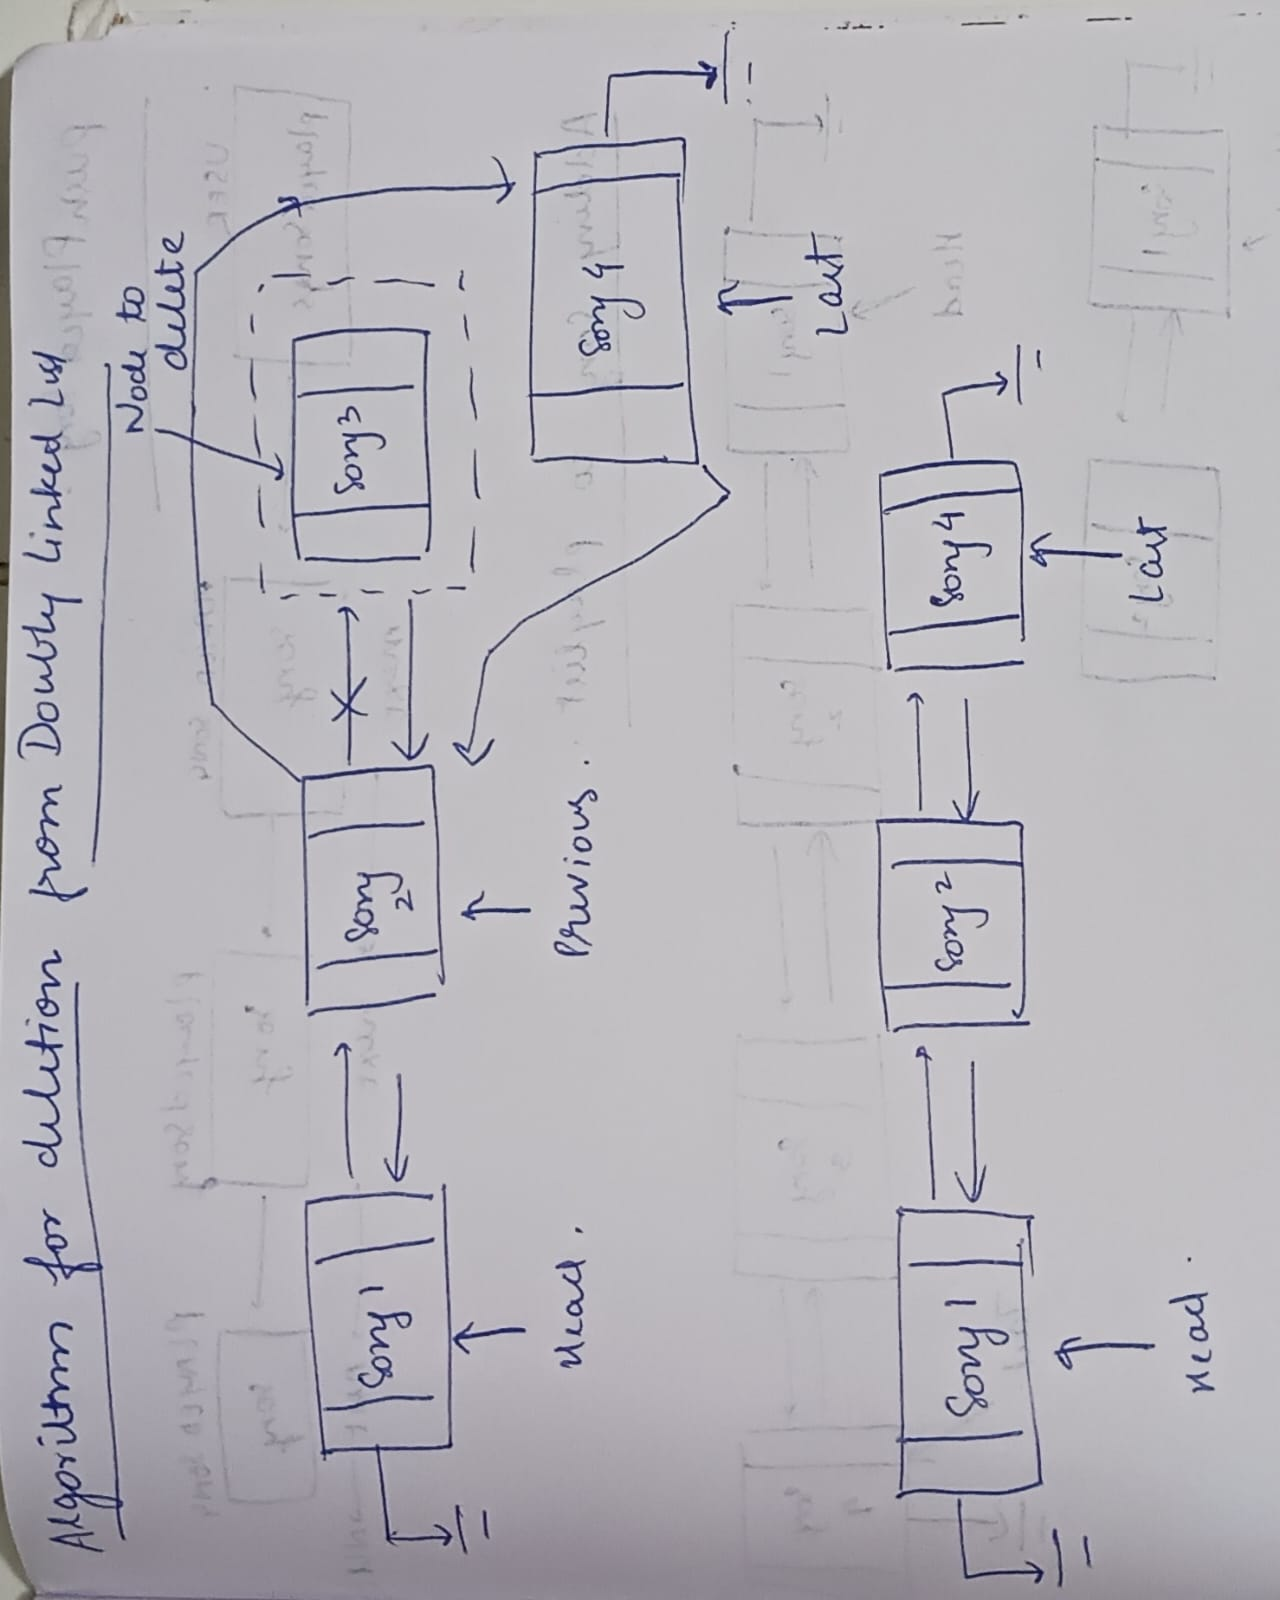 Algorithm for deletion from Doubly Linked List
Node to
delete
Song 1
Song
2
Song 3
Song 4
Head.
Previous.
Last
Song 1
Song 2
Song 4
Head.
Last